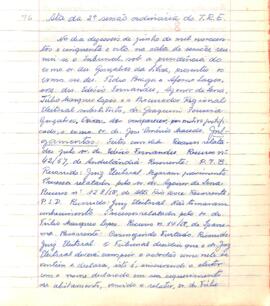 76
Ata da 2ª sessão ordinária do T.R.E.
No dia dezesseis de junho de mil novecen-
tos e cinquenta e oito, na sala de sessões, reu-
niu-se o Tribunal, sob a presidência do
exmo. sr. des. Gonçalves da Silva, presentes os
exmos. srs. des. Pedro Braga e Afonso Lages,
drs. Fernandes, Agenor de Sena,
Túlio Marques Lopes e o Procurador Regional
Eleitoral substituto, dr. Joaquim Ferreira
Gonçalves. Deixou de comparecer, por motivo justifi-
cado, o exmo. sr. dr. José Américo Macedo. Jul-
gamentos. Feitos com dia. Recursos relata-
dos pelo sr. dr. Fernandes: Recurso nº
62/57, de Andrelândia. Recorrente: P.T.B.
Recorrido: Juiz Eleitoral. Negaram provimento.
Processos relatados pelo sr. dr. Agenor de Sena:
Recurso nº 128/58, de Rio Doce. Recorrente:
P.S.D. Recorrido: Juiz Eleitoral. Não tomaram
conhecimento. Processos relatados pelo sr. dr.
Túlio Marques Lopes. Recurso nº 14/58, de
Recorrente: Furtado. Recorrido:
Juiz Eleitoral. O Tribunal decidiu que o dr. Juiz
Eleitoral deverá
o nome declarado em seu requerimento
de alistamento, vencido o relator, sr. dr. Túlio